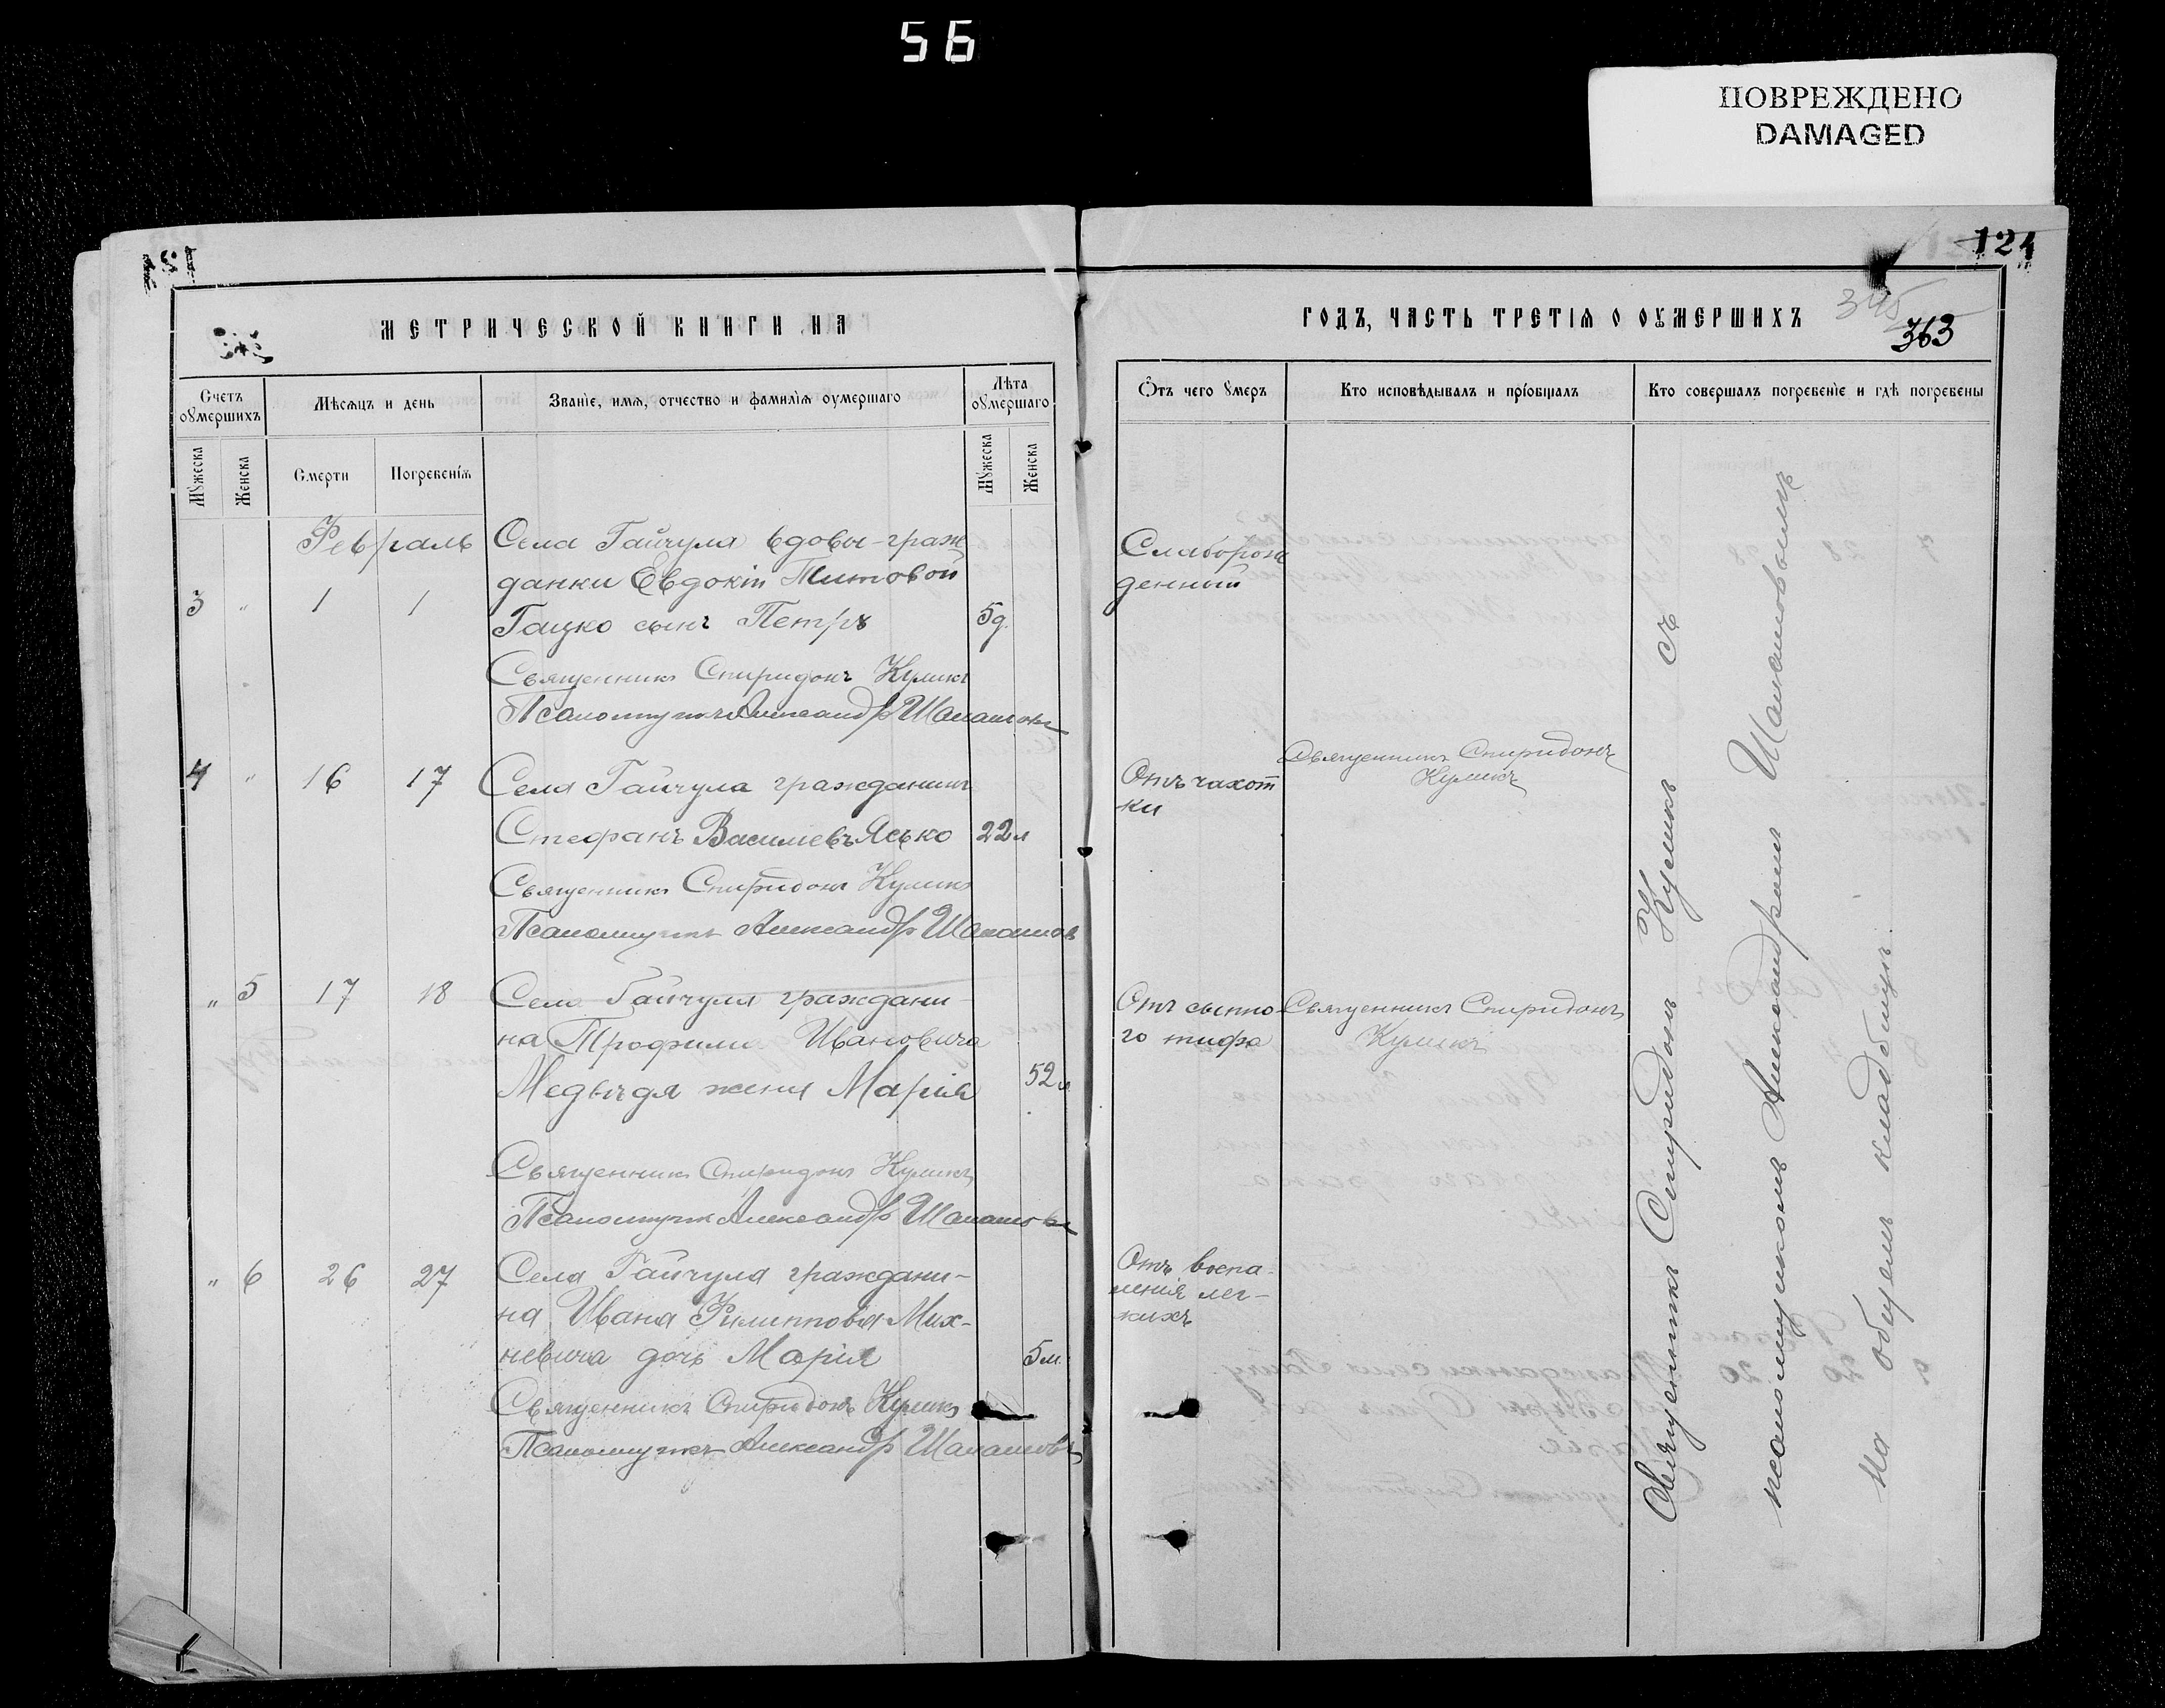 56
ПОВРЕЖДЕНО
DAMAGED
124
345
363
МЕТРИЧЕСКОЙ КНИГИ НА
ГОДЪ, ЧАСТЬ ТРЕТІЯ О ОУМЕРШИХЪ
Счетъ оумершихъ
Мѣсяцъ и день
Званіе, имя, отчество и фамилія оумершаго
Лѣта оумершаго
Отъ чего умеръ
Кто исповѣдывалъ и пріобщалъ
Кто совершалъ погребеніе и гдѣ погребены
Мужеска
Женска
Смерти
Погребенія
Мужеска
Женска
Февраль
Села Гайчула вдовы-граж
данки Евдокіи Титовой
3 " 1 1 Гацко сынъ Петръ 5д.
Слаборож
денный
Священникъ Спиридонъ Куликъ
Псаломщикъ Александръ
4 " 16 17 Села Гайчула гражданинъ
Стефанъ Васильевъ Ясько 22л
Отъ чахот
ки
Священникъ Спиридонъ
Куликъ
Священникъ Спиридонъ Куликъ
Псаломщикъ Александръ
" 5 17 18 Села Гайчула граждани-
на Трофима Ивановича
Медвѣдя жена Марія 52л
Отъ сыпно
го тифа
Священникъ Спиридонъ
Куликъ
Священникъ Спиридонъ Куликъ
Псаломщикъ Александръ
" 6 26 27 Села Гайчула граждани-
на Ивана Филиппова Мих-
невича дочь Марія 5м.
Отъ воспа-
ленія лег-
кихъ
Священникъ Спиридонъ Куликъ
Псаломщикъ Александръ
Священникъ Спиридонъ Куликъ съ
псаломщикомъ Александромъ
на общемъ кладбищѣ.